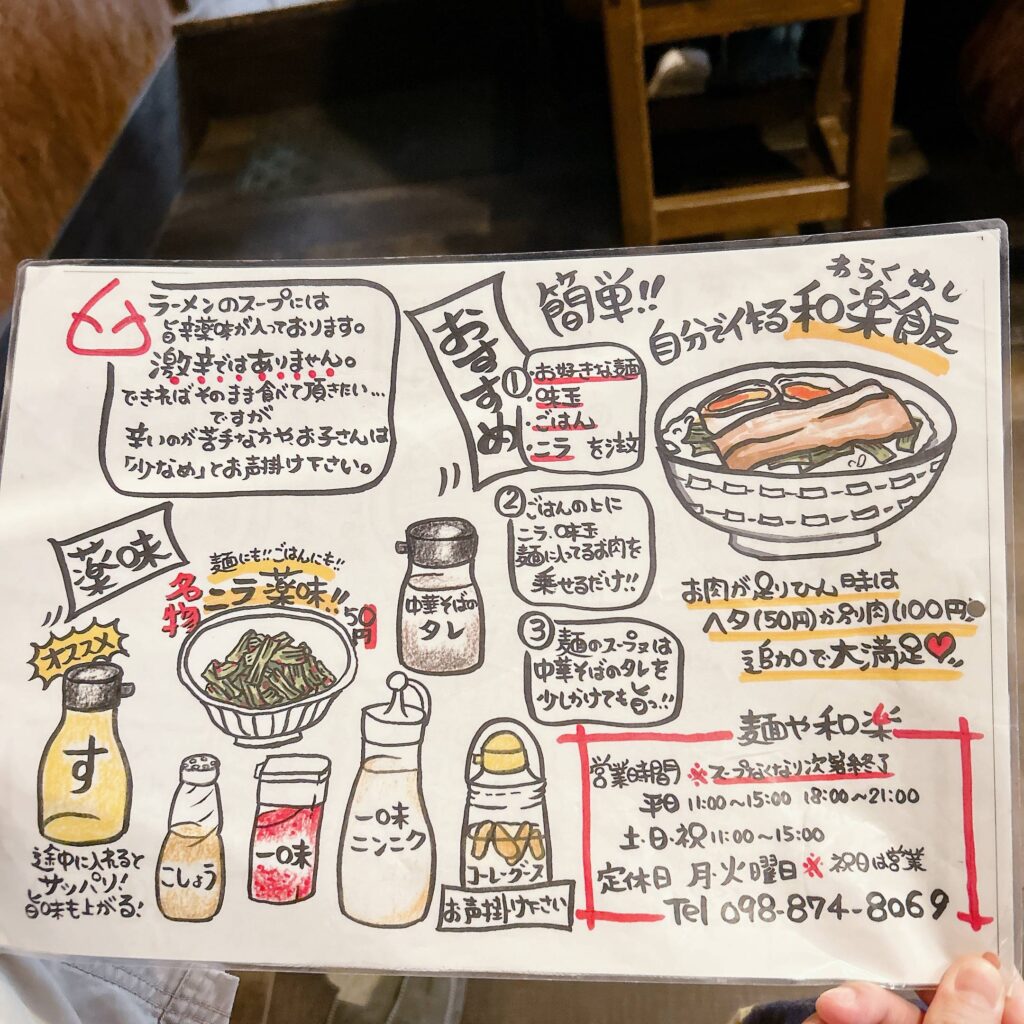 ラーメンのスープには
旨辛薬味が入っております。
激辛ではありません。
できればそのまま食べて頂きたい…
ですが
辛いのが苦手な方やお子さんは
「少なめ」とお声掛け下さい。
おすすめ
簡単!!
わらくめし
自分で作る和楽飯
①・お好きな麺
・味玉
・ごはん
・ニラ を注文
②ごはんの上に
ニラ、味玉
麺に入ってるお肉を
乗せるだけ!!
③麺のスープ又は
中華そばのタレを
少しかけても旨っ!!
お肉が足りひん時は
ヘタ(50円)か別肉(100円)
追加で大満足♥!!
薬味
麺にも!!ごはんにも!!
名物
ニラ薬味!!
50円
中華そばの
タレ
オススメ
す
途中に入れると
サッパリ!
旨味も上がる!
こしょう
一味
一味
ニンニク
コーレーグース
お声掛け下さい
麺や和楽
営業時間 ※スープなくなり次第終了
平日 11:00~15:00 18:00~21:00
土・日・祝 11:00~15:00
定休日 月・火曜日 ※祝日は営業
Tel 098-874-8069